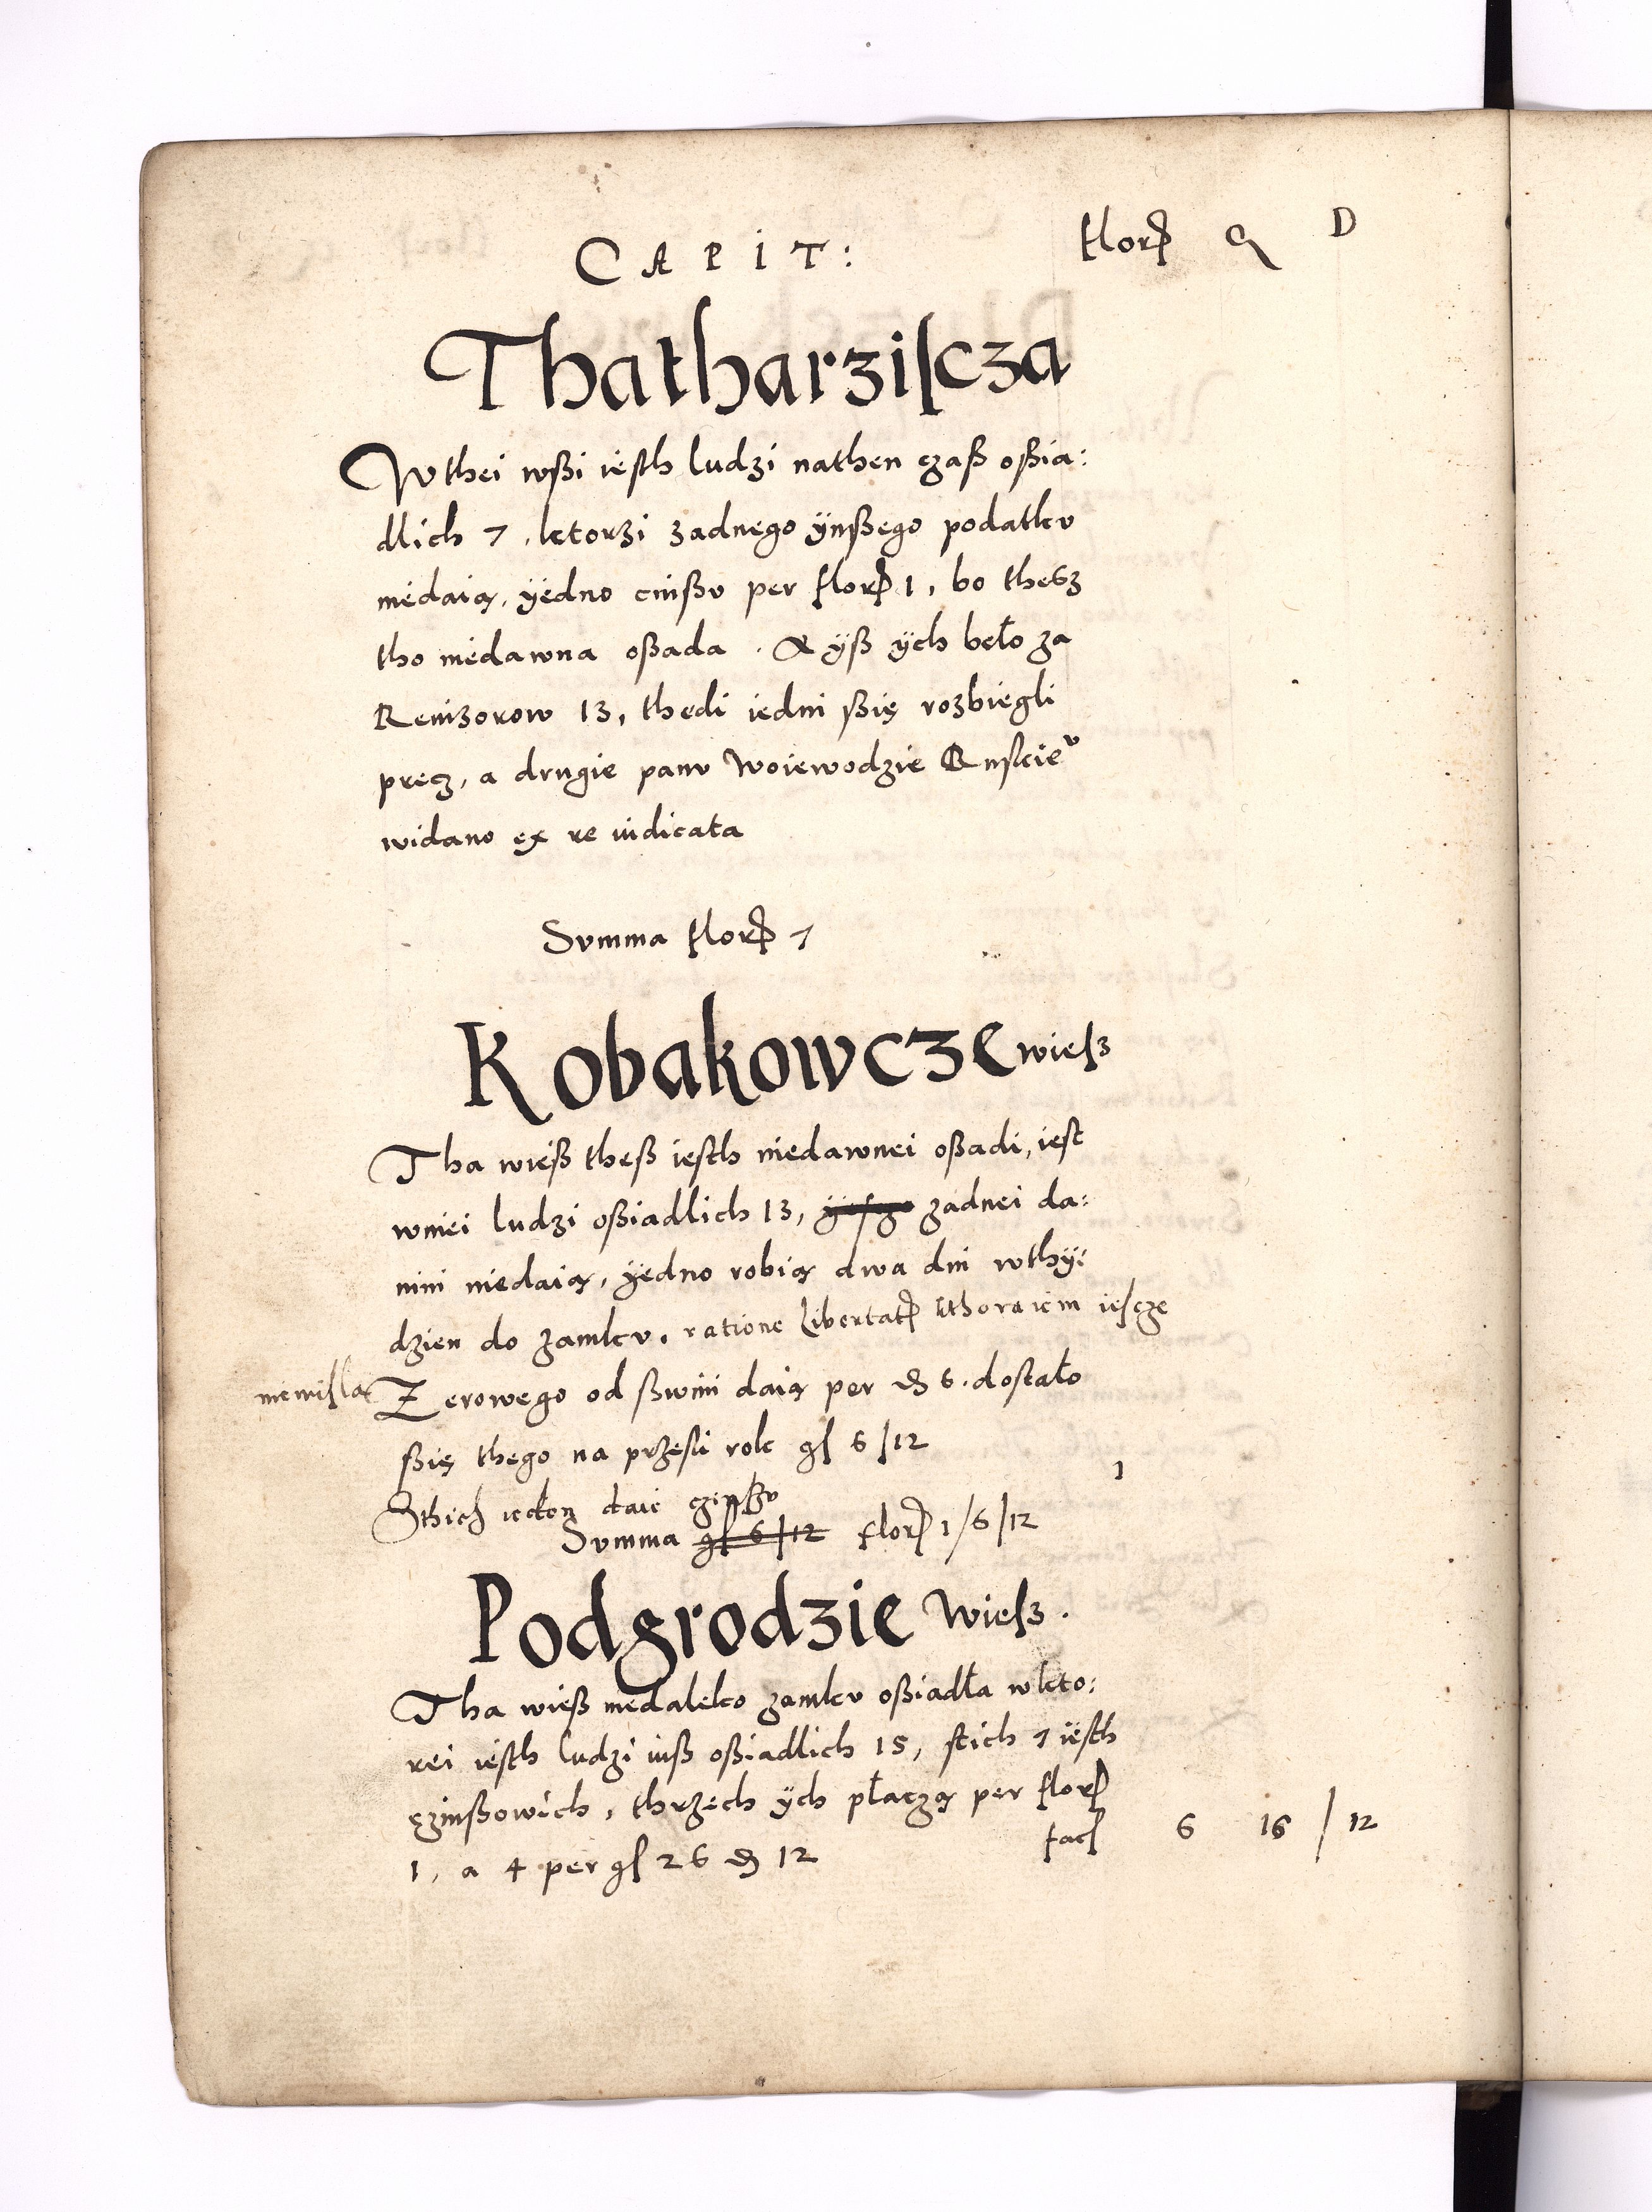 CAPIT: flor G D
Thatharziſcza
Wthei wßi ieſth ludzi nathen czaß oßia:
dlich 7, ktorzi zadnego ÿnßego podatkv
niedaią, ÿedno cinßv per flor 1, bo thesz
tho niedawna oßada. A ÿß ÿch beło za
Reuizorow 13, thedi iedni ßię rozbiegli
precz, a drugie panv Woiewodzie Ruſkie͏ᵛ
widano ex re iudicata
Svmma flor 7
Kobakowcze wieſz
Tha wieß theß ieſth niedawnei oßadi, ieſt
wniei ludzi oßiadlich 13, zadnei da:
nini niedaią, ÿedno robią dwa dni wthÿ:
dzien do zamkv, ratione libertat kthora iem ieſcze
niewiſła
Zerowego od ßwini daią per ₰ 6. doſtało
ßię thego na przeſli rok gſ 6/12
Sthich ieden daie czinßv 1
Svmma gſ 6/12 flor 1/6/12
Podgrodzie Wieſz.
Tha wieß niedaleko zamkv oßiadła wkto:
rei ieſth ludzi inß oßiadlich 15, ſtich 7 ieſth
czinßowich, thrzech ÿch płaczą per flor
1, a 4 per gſ 26 ₰ 12 fac 6 16/12